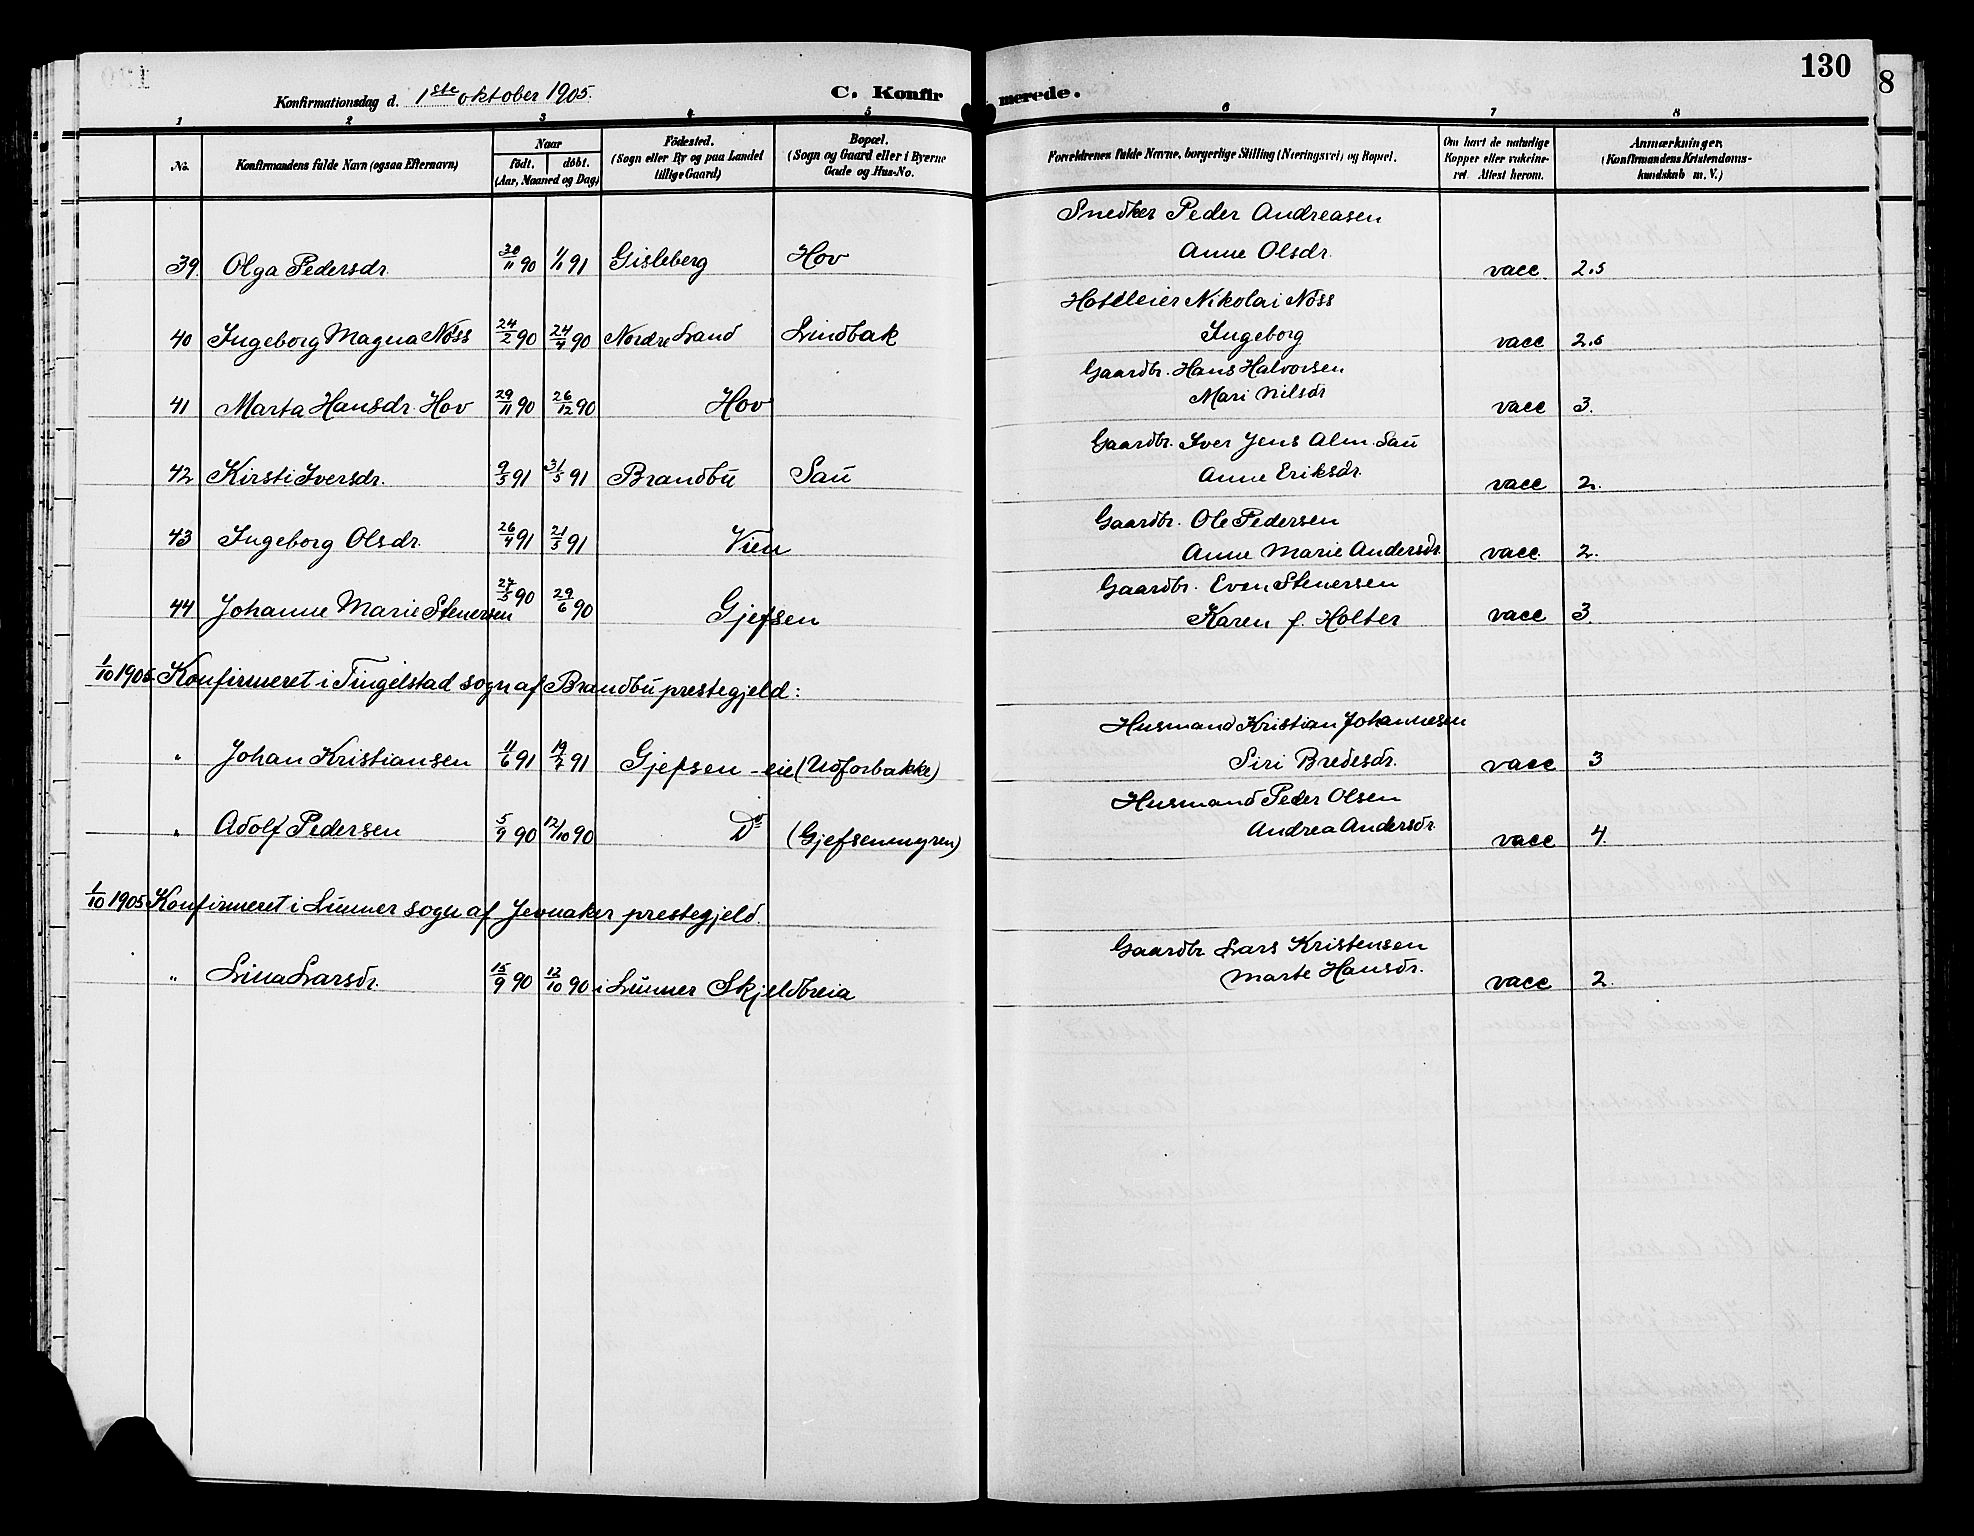 130
8
Konfirmationsdag d. 1ste oktober 1905. C. Konfirmerede.
1 2 3 4 5 6 7 8
No. Konfirmandens fulde Navn (ogsaa Efternavn) Naar født. døbt. (Aar, Maaned og Dag) Födested. (Sogn eller By og paa Landet tillige Gaard) Bopæl. (Sogn og Gaard eller i Byerne Gade og Hus-No. Forældrenes fulde Navne, borgerlige Stilling (Næringsvei) og Bopæl. Om havt de naturlige Kopper eller vakcineret. Attest herom. Anmærkninger. (Konfirmandens Kristendomskundskab m. V.)
Snedker Peder Andreasen
39. Olga Pedersdr. 30/11 90 1/1 91 Gisleberg Hov Anne Olsdr. vacc 2.5
Hotelleier Nikolai Nöss
40 Ingeborg Magna Nöss 24/2 90 24/4 90 Nordre Land Lindbak Ingeborg vacc 2.5
Gaardbr. Hans Halvorsen
41 Marta Hansdr. Hov 29/11 90 26/12 90 Hov Mari Nilsdr vacc 3.
Gaardbr. Iver Jens Alm. Sau
42 Kirsti Iversdr. 9/5 91 31/5 91 Brandbu Sau Anne Eriksdr. vacc 2.
Gaardbr. Ole Pedersen
43 Ingeborg Olsdr. 26/4 91 21/5 91 Vien Anne Marie Andersdr. vacc. 2.
Gaardbr. Even Stenersen
44 Johanne Marie Stenersen 27/5 90 29/6 90 Gjefsen Karen f. Holter vacc 3.
1/10 1905 Konfirmeret i Tingelstad sogn af Brandbu prestegjeld:
Husmand Kristian Johannesen
" Johan Kristiansen 11/6 91 19/7 91 Gjefsen - eie (Udforbakke) Siri Bredesdr. vacc 3
Husmand Peder Olsen
" Adolf Pedersen 5/9 90 12/10 90 Do (Gjefsenmyren) Andrea Andersdr. vacc 4.
1/10 1905 Konfirmeret i Lunner sogn af Jevnaker prestegjeld.
Gaardbr Lars Kristensen
" Lina Larsdr. 15/9 90 12/10 90 i Lunner Skjeldbreia Marte Hansdr. vacc 2.